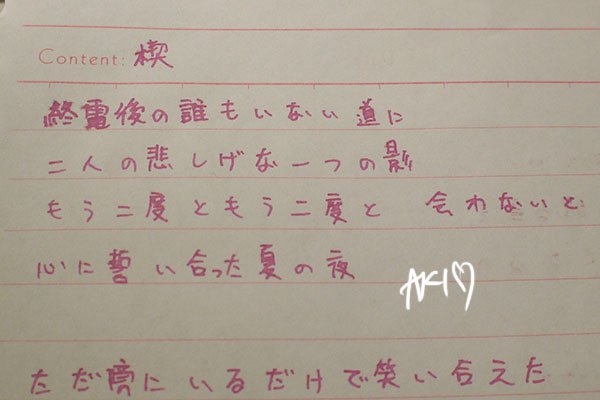 Content: 楔
終電後の誰もいない道に
二人の悲しげな一つの影
もう二度ともう二度と 会わないと
心に誓い合った夏の夜
AKI♡
ただ傍にいるだけで笑い合えた